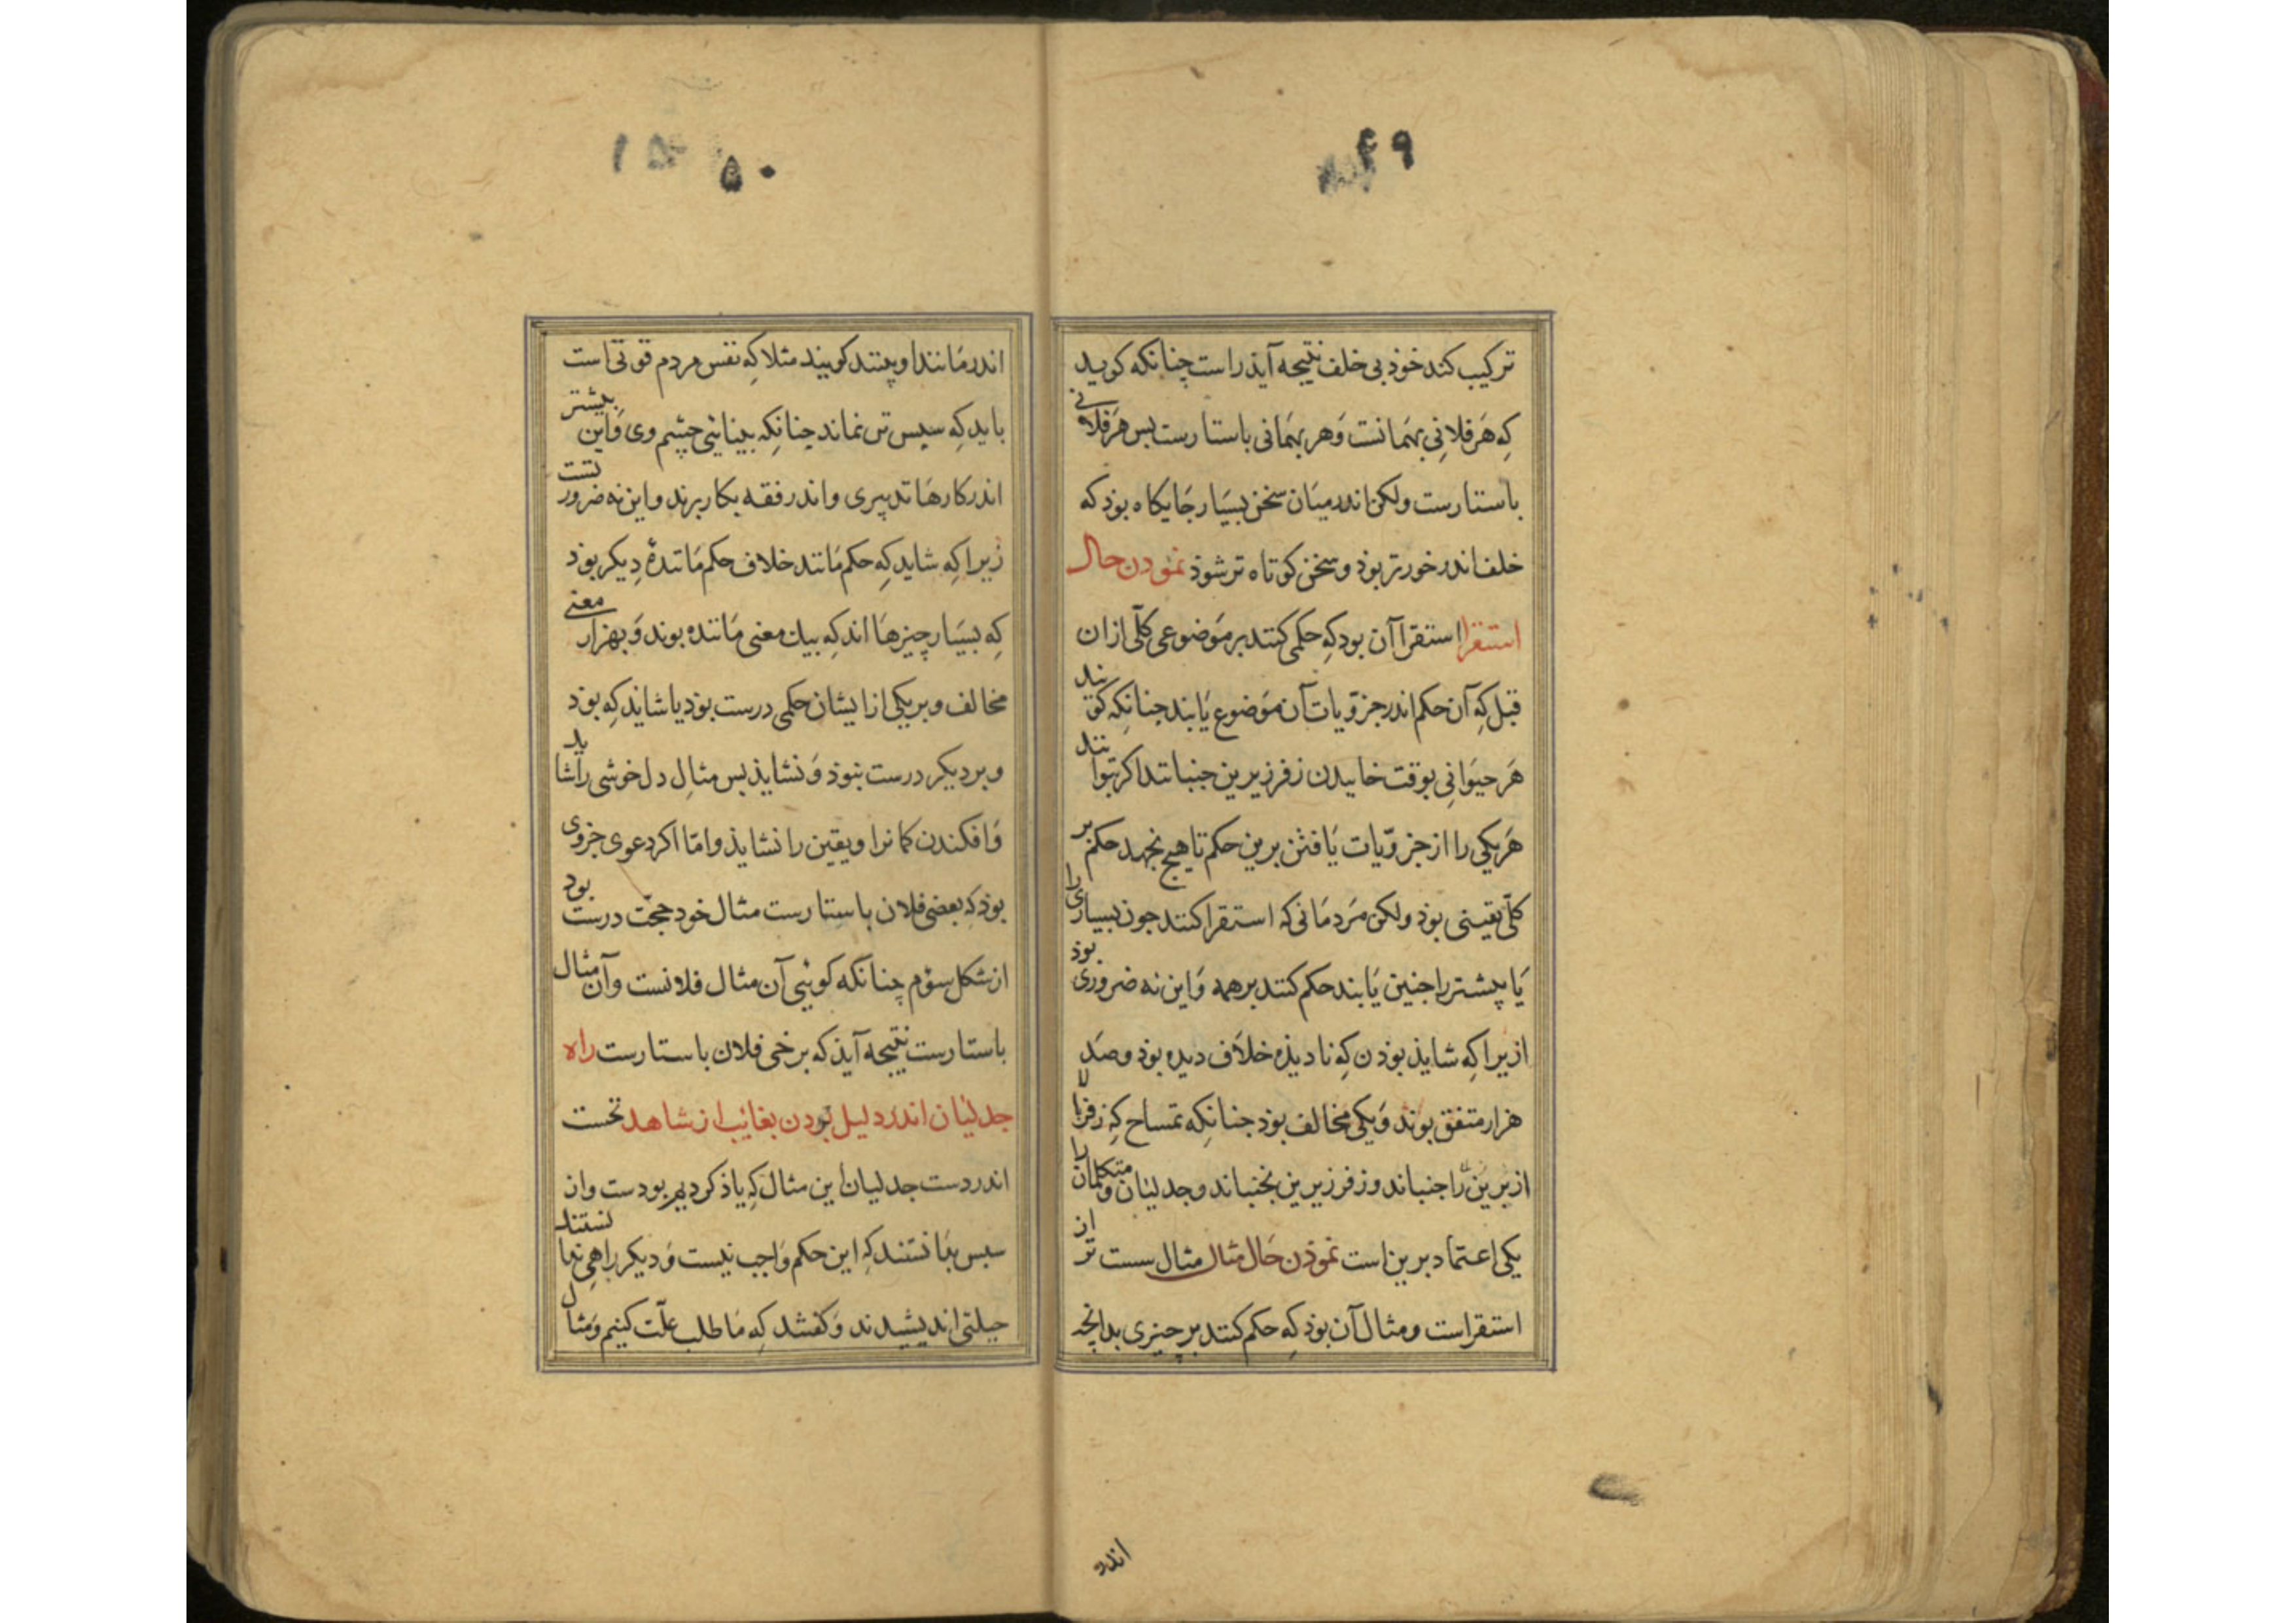 ۴۹
ترکیب کند خوذ بی خلف نتیجه آیذ راست چنانکه کویید
که هر فلانی بهمانست و هر بهمانی باستارست بس هر فلانی
باستارست ولکن اندر میان سخن بسیار جایکاه بوذ که
خلف اندر خورتر بوذ و سخن کوتاه تر شوذ نموذن حال
استقرا استقرا آن بود که حکمی کنند بر موضوعی کلّی ازان
قبل که آن حکم اندر جزویات آن موضوع یابند جنانکه کویند
هر حیوانی بوقت خاییدن زفر زیرین جنبانند اکر بتوانند
هر یکی را از جزویات یافتن برین حکم تا هیج نجهد حکم بر
کلّی یقینی بوذ ولکن مردمانی که استقرا کنند جون بسیاری را
یا بیشتر را جنین یابند حکم کنند بر همه و این نه ضروری بوذ
ازیرا که شایذ بوذن که نادیذه خلاف دیده بوذ و صد
هزار متفق بوند و یکی مخالف بوذ جنانکه تمساح که زفر بالا
ازیرین را جنباند و زفر زیرین نجنباند و جدلیان و متکلمان را
یکی اعتماد برین است نموذن حال مثال مثال سست تر از
استقراست و مثال آن بوذ که حکم کنند بر چیزی بدانچه
اندر
۵۰
اندر مانند او بینند کویند مثلا که نفس مردم قوتی است
باید که سبس تن نماند چنانکه بینایی چشم وی و این بیشتر
اندر کارها تدبیری و اندر فقه بکار برند و این نه ضرورتست
زیرا که شاید که حکم مانند خلاف حکم مانندهٔ دیکر بوذ
که بسیار چیزها اند که بیک معنی مانده بوند و بهزار معنی
مخالف و بر یکی از ایشان حکمی درست بوذ یا شاید که بوذ
و بر دیکر درست نبوذ و نشایذ بس مثال دل خوشی را شاید
و افکندن کمان را و یقین را نشایذ و امّا اکر دعوی جزوی
بوذ که بعضی فلان باستارست مثال خود حجّت درست بود
از شکل سؤم چنانکه کویی آن مثال فلانست و آن مثال
باستارست نتیجه آیذ که برخی فلان باستارست راه
جدلیان اندر دلیل بودن بغائب از شاهد نخست
اندر دست جدلیان این مثال که یاذ کردیم بودست وان
سبس بدانستند که این حکم واجب نیست و دیکر راهی ندانستند
حیلتی اندیشیدند و کفتند که ما طلب علّت کنیم و مثال